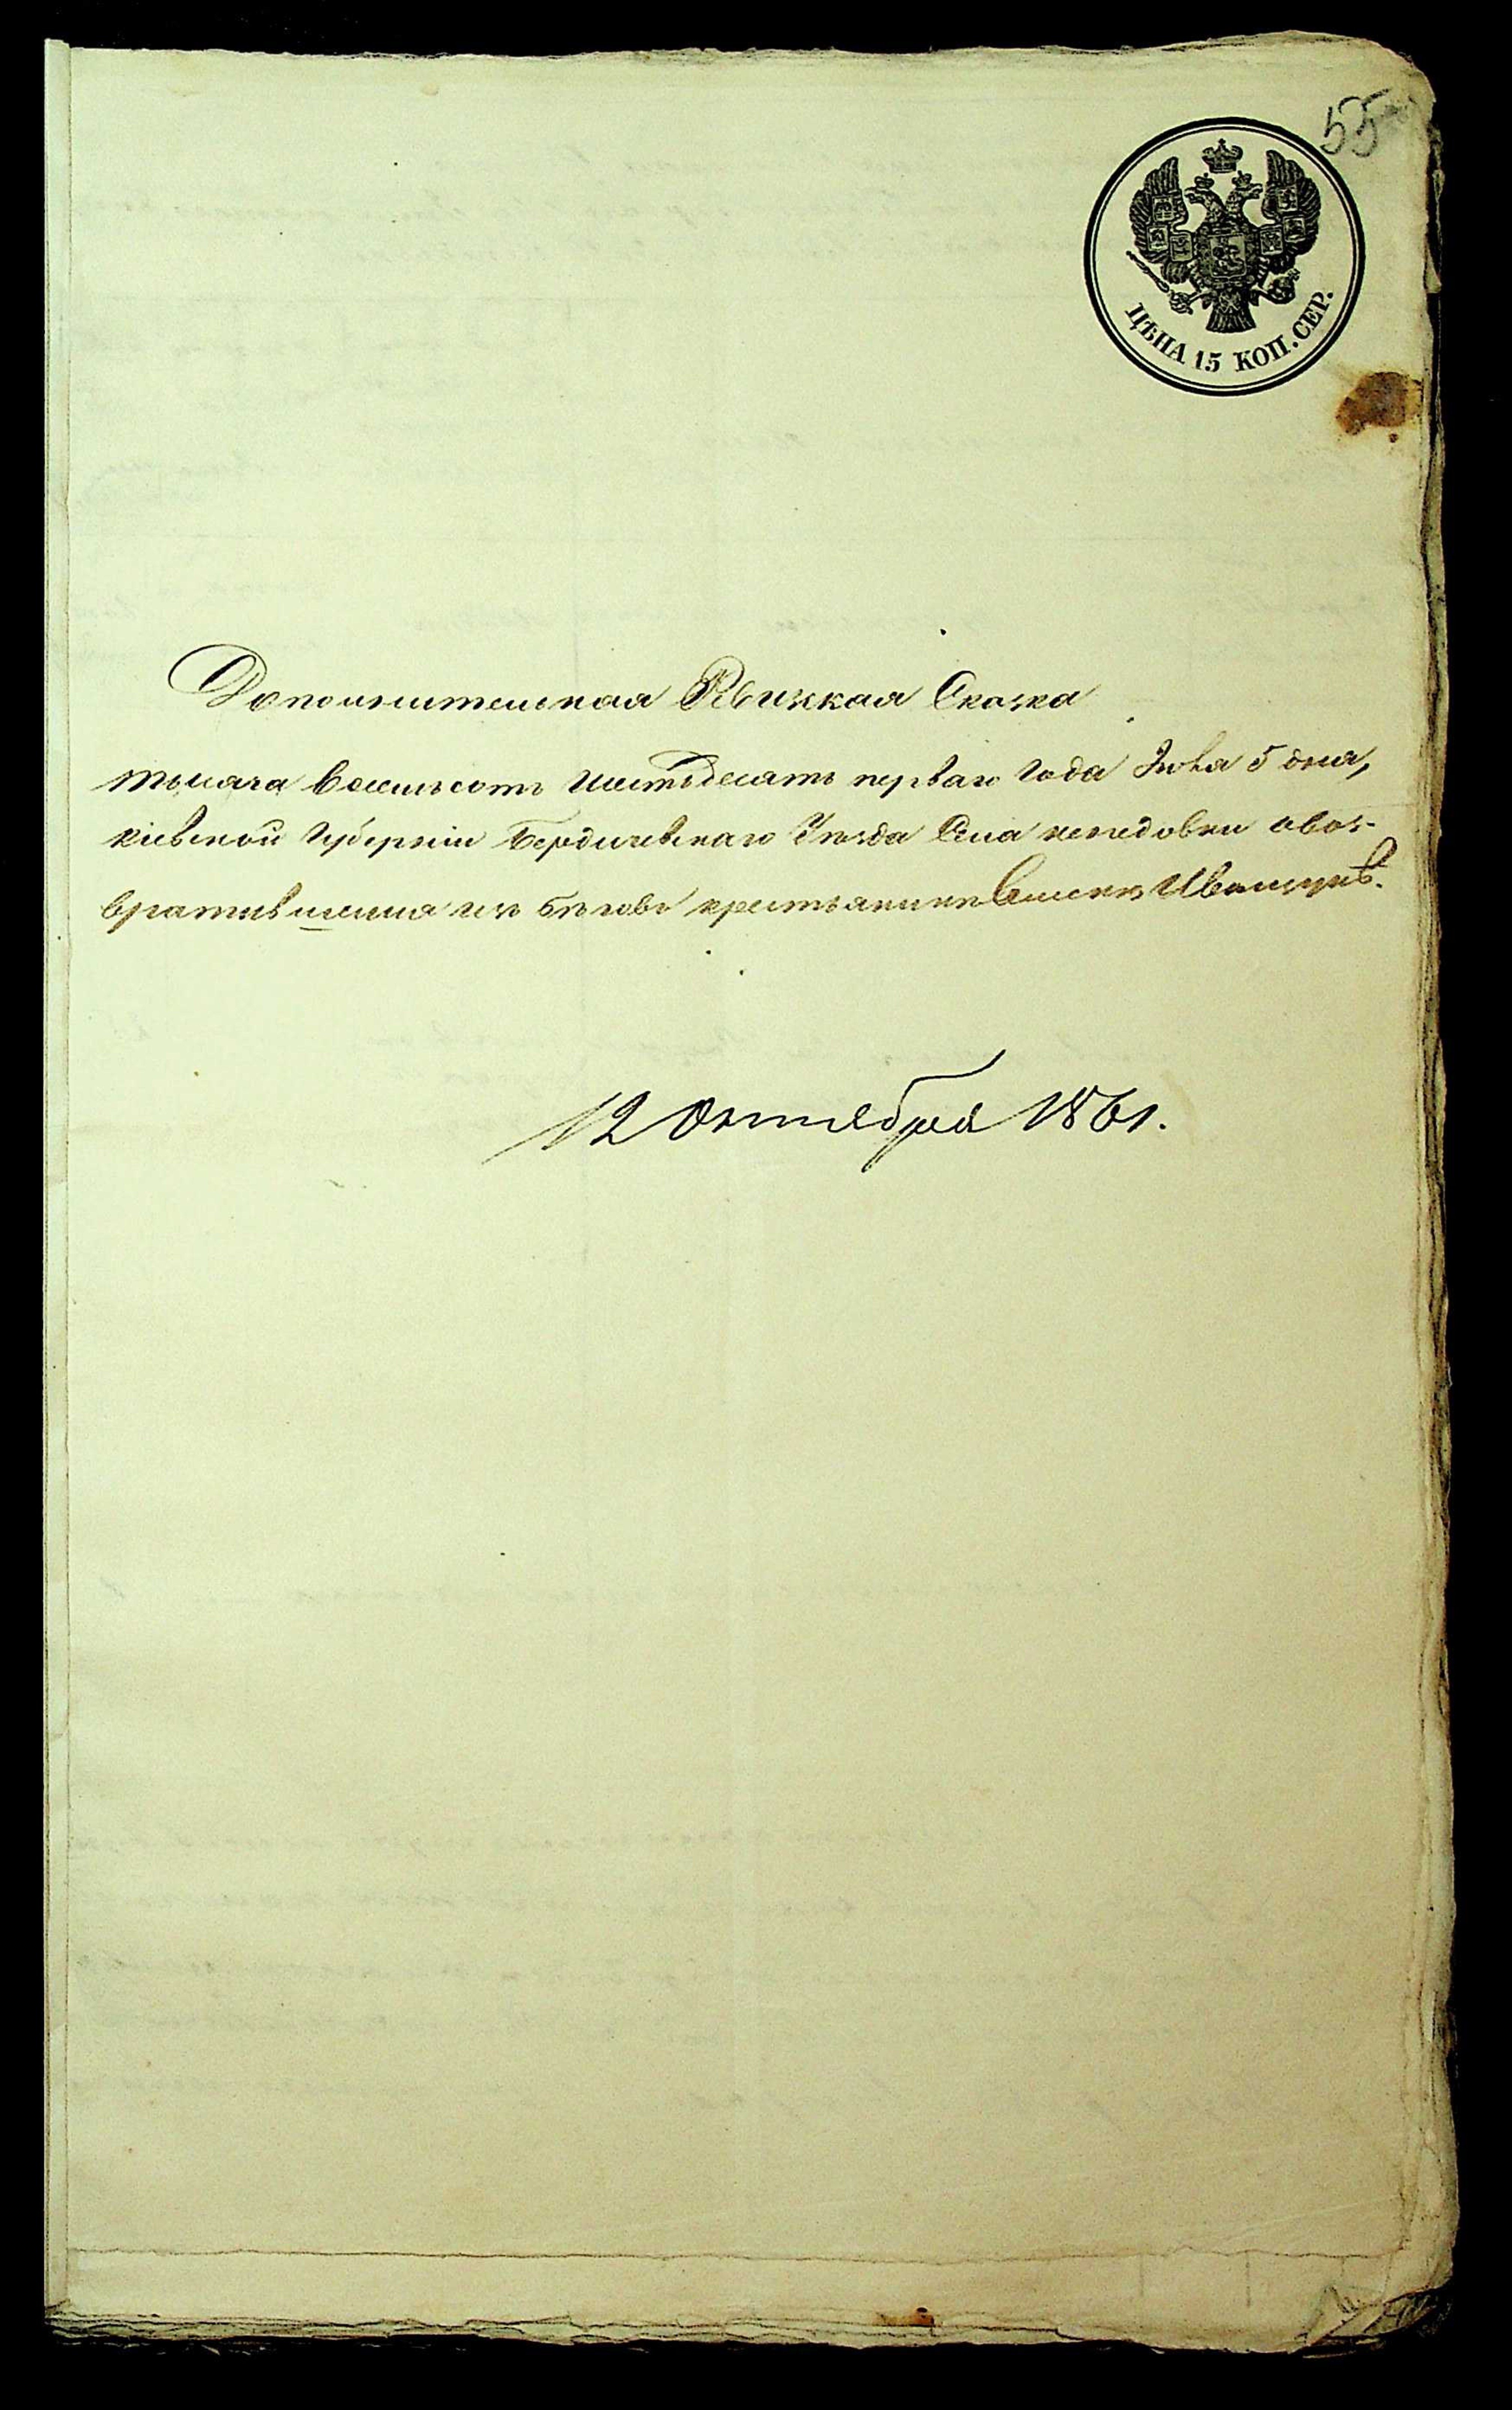 55
ЦѢНА 15 КОП. СЕР.
Дополнительная Ревизкая Сказка
тысяча восемьсотъ шестьдесятъ перваго года Іюня 5 дня,
Кіевской Губерніи Бердичевскаго Уѣзда Села о воз-
вратившемся изъ бѣговъ крестьянинѣ
12 Октября 1861.